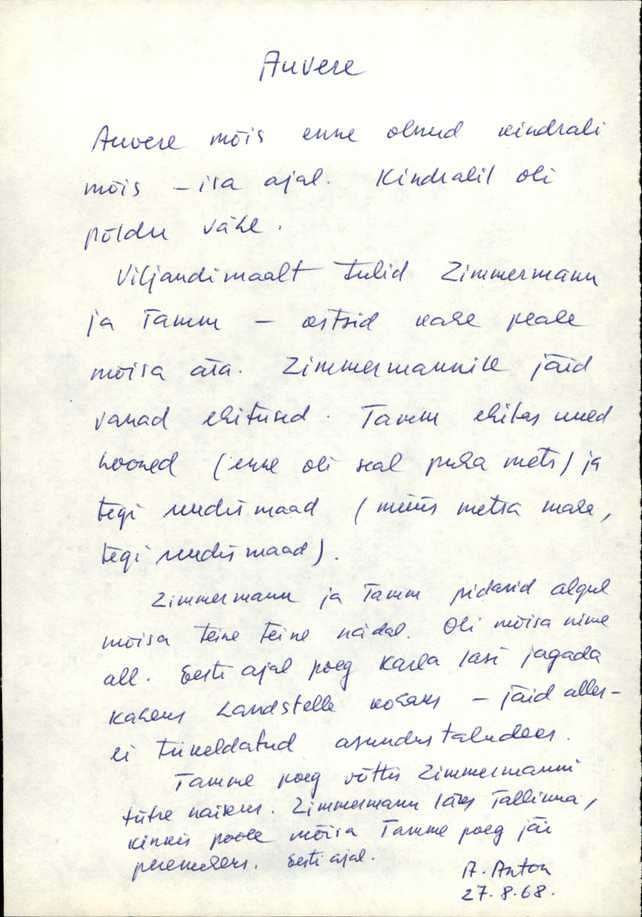 Auvere
Auvere mõis enne olnud kindrali
mõis – isa ajal. Kindralil oli
põldu vähe.
Viljandimaalt tulid Zimmermann
ja Tamm – ostsid kahe peale
mõisa ära. Zimmermannile jäid
vanad ehitused. Tamm ehitas uued
hooned (enne oli seal puha mets) ja
tegi uudismaad (müüs metsa maha,
tegi uudismaad).
Zimmermann ja Tamm pidasid algul
mõisa teine teine nädal. Oli mõisa nime
all. Eesti ajal poeg Karla lasi jagada
kaheks Landstelle kohaks – jäid alles –
ei tükeldatud asundustaludeks.
Tamme poeg võttis Zimmermanni
tütre naiseks. Zimmermann läks Tallinna,
kinkis poole mõisa Tamme poeg jäi
peremeheks. Eesti ajal.
A. Anton
27.8.68.